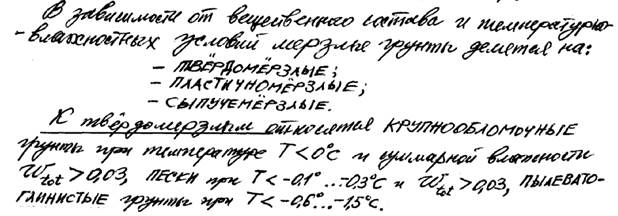 В зависимости от вещественного состава и температурно-
-влажностных условий мерзлые грунты делятся на:
– ТВЁРДОМЁРЗЛЫЕ;
– ПЛАСТИЧНОМЁРЗЛЫЕ;
– СЫПУЧЕМЁРЗЛЫЕ.
К твёрдомерзлым относятся КРУПНООБЛОМОЧНЫЕ
грунты при температуре T<0°C и суммарной влажности
W_tot>0,03, ПЕСКИ при T<-0,1°...-0,3°C и W_tot>0,03, ПЫЛЕВАТО-
ГЛИНИСТЫЕ грунты при T<-0,6°...-1,5°C.